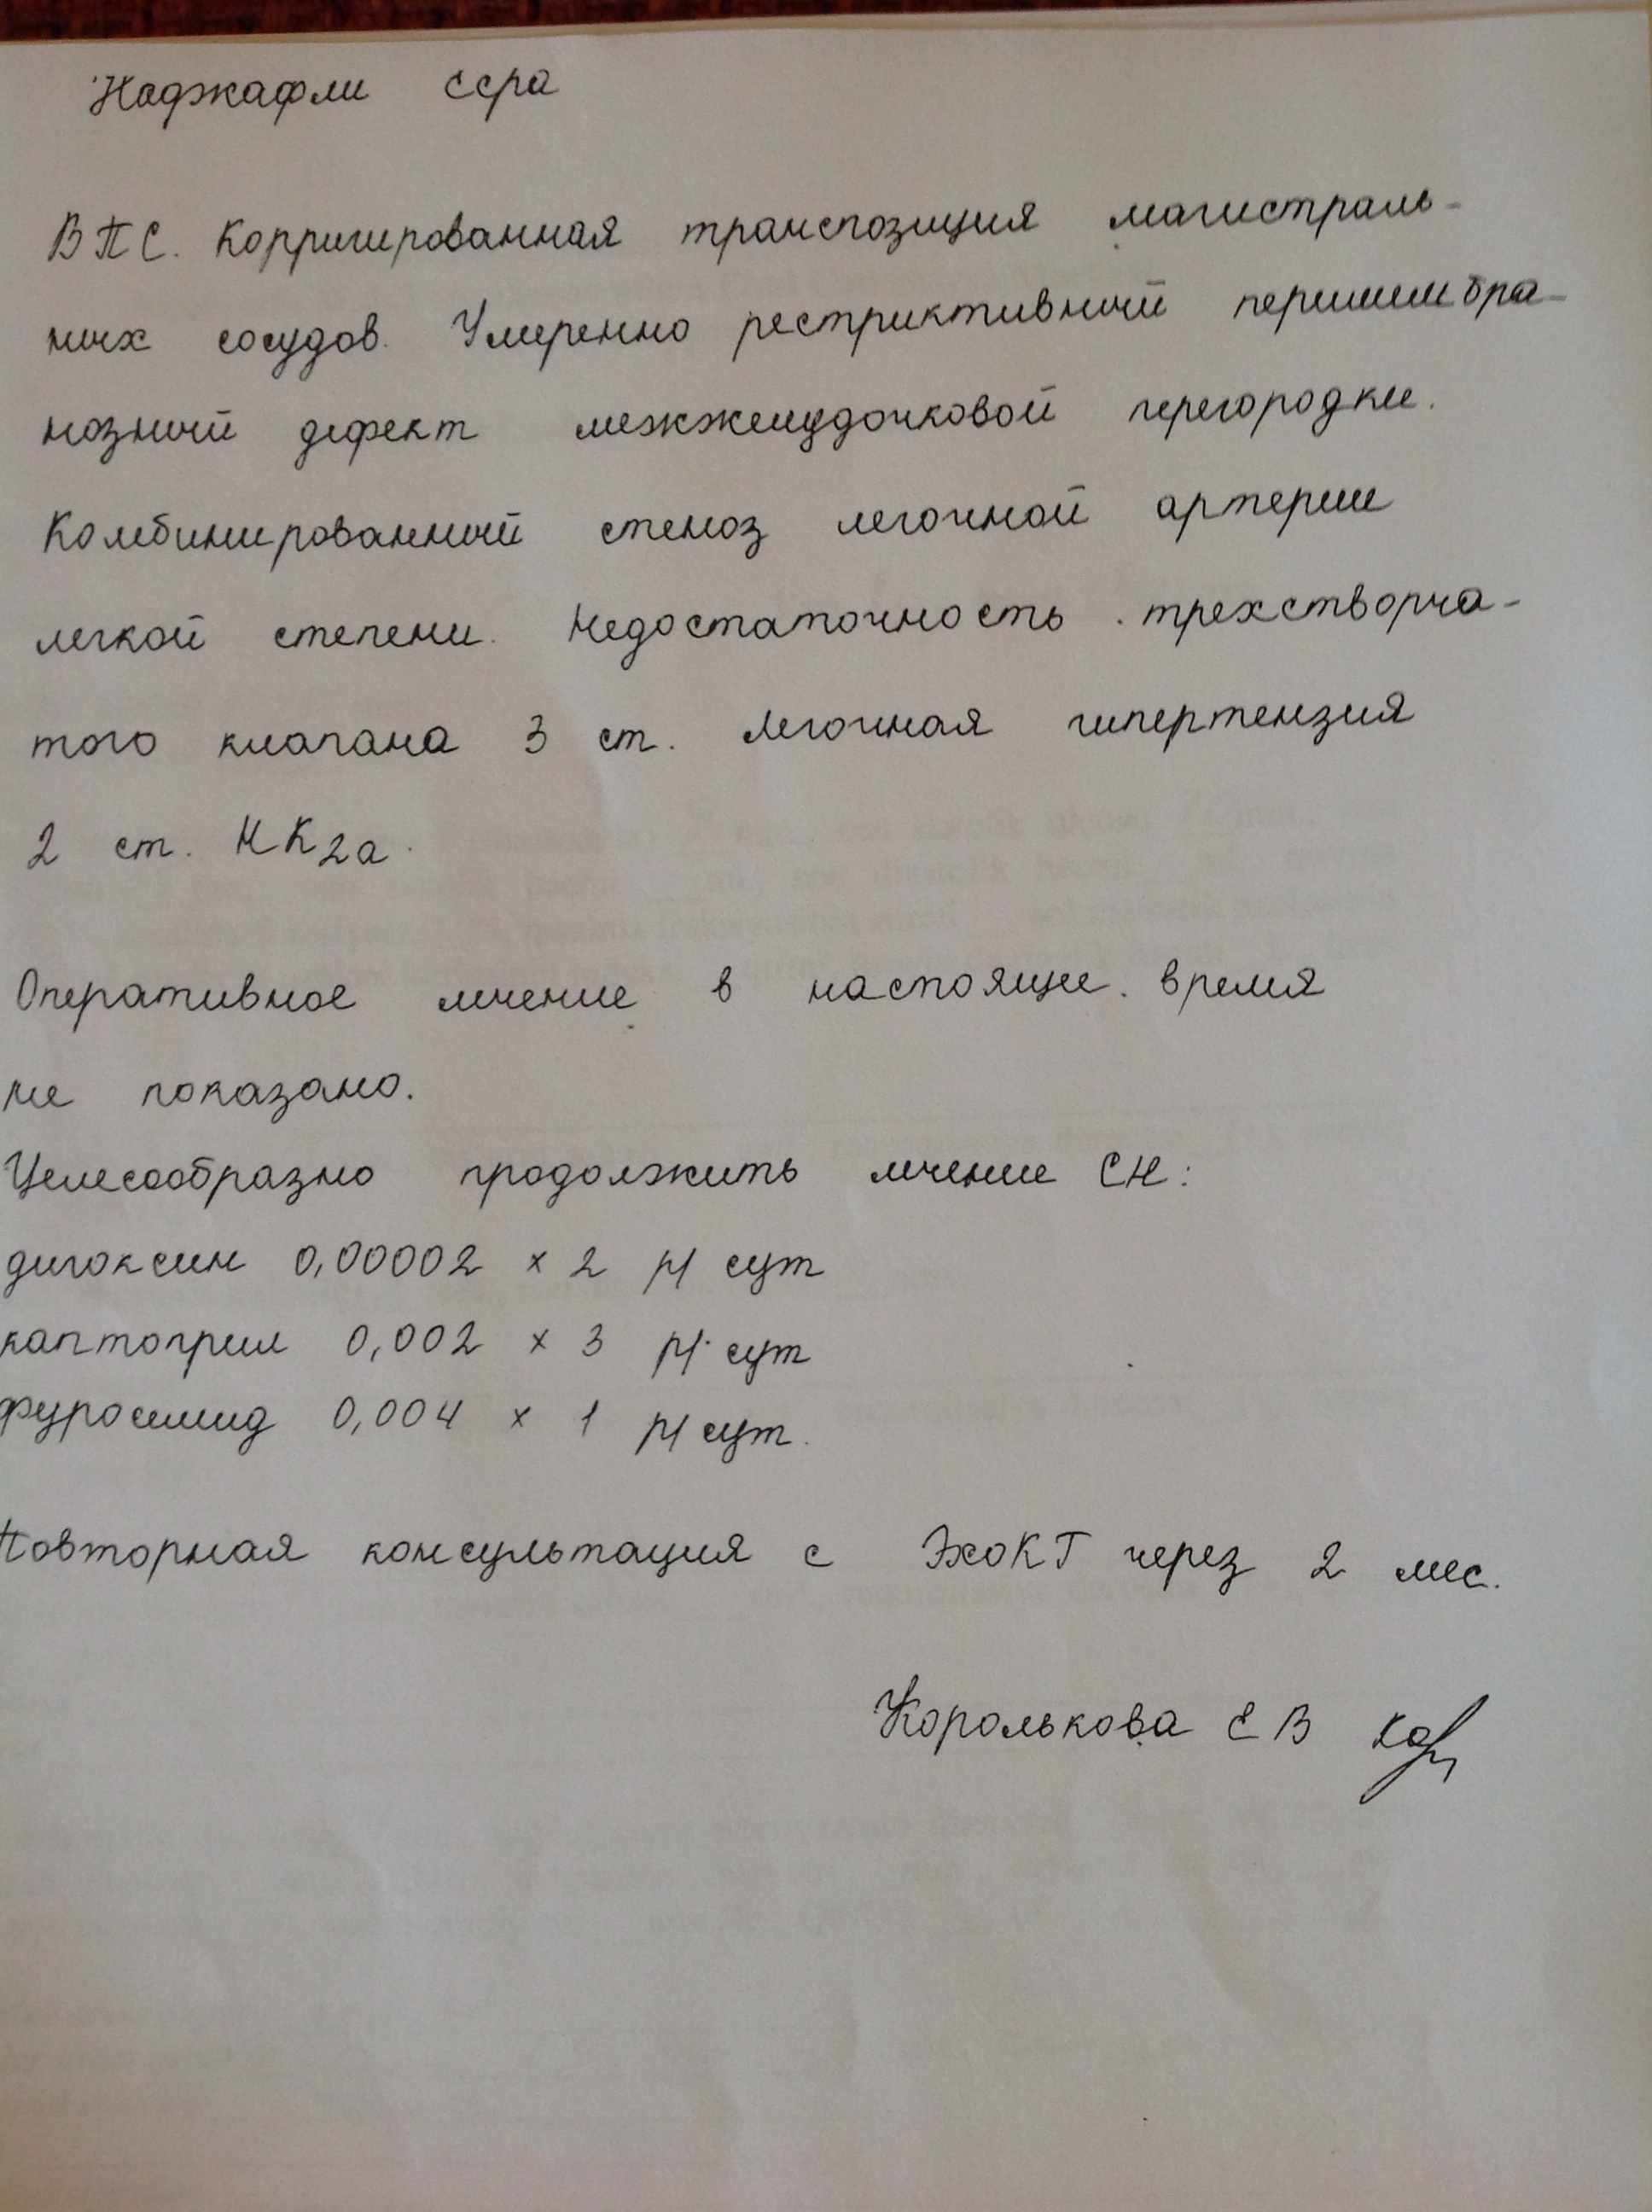 Наджафли Есра
ВПС. Корригированная транспозиция магистраль-
ных сосудов. Умеренно рестриктивный перимембра-
нозный дефект межжелудочковой перегородки.
Комбинированный стеноз легочной артерии
легкой степени. Недостаточность трехстворча-
того клапана 3 ст. Легочная гипертензия
2 ст. НК2а.
Оперативное лечение в настоящее время
не показано.
Целесообразно продолжить лечение СН:
дигоксин 0,00002 х 2 р/сут
каптоприл 0,002 х 3 р/сут
фуросемид 0,004 х 1 р/сут.
Повторная консультация с ЭхоКГ через 2 мес.
Королькова ЕВ